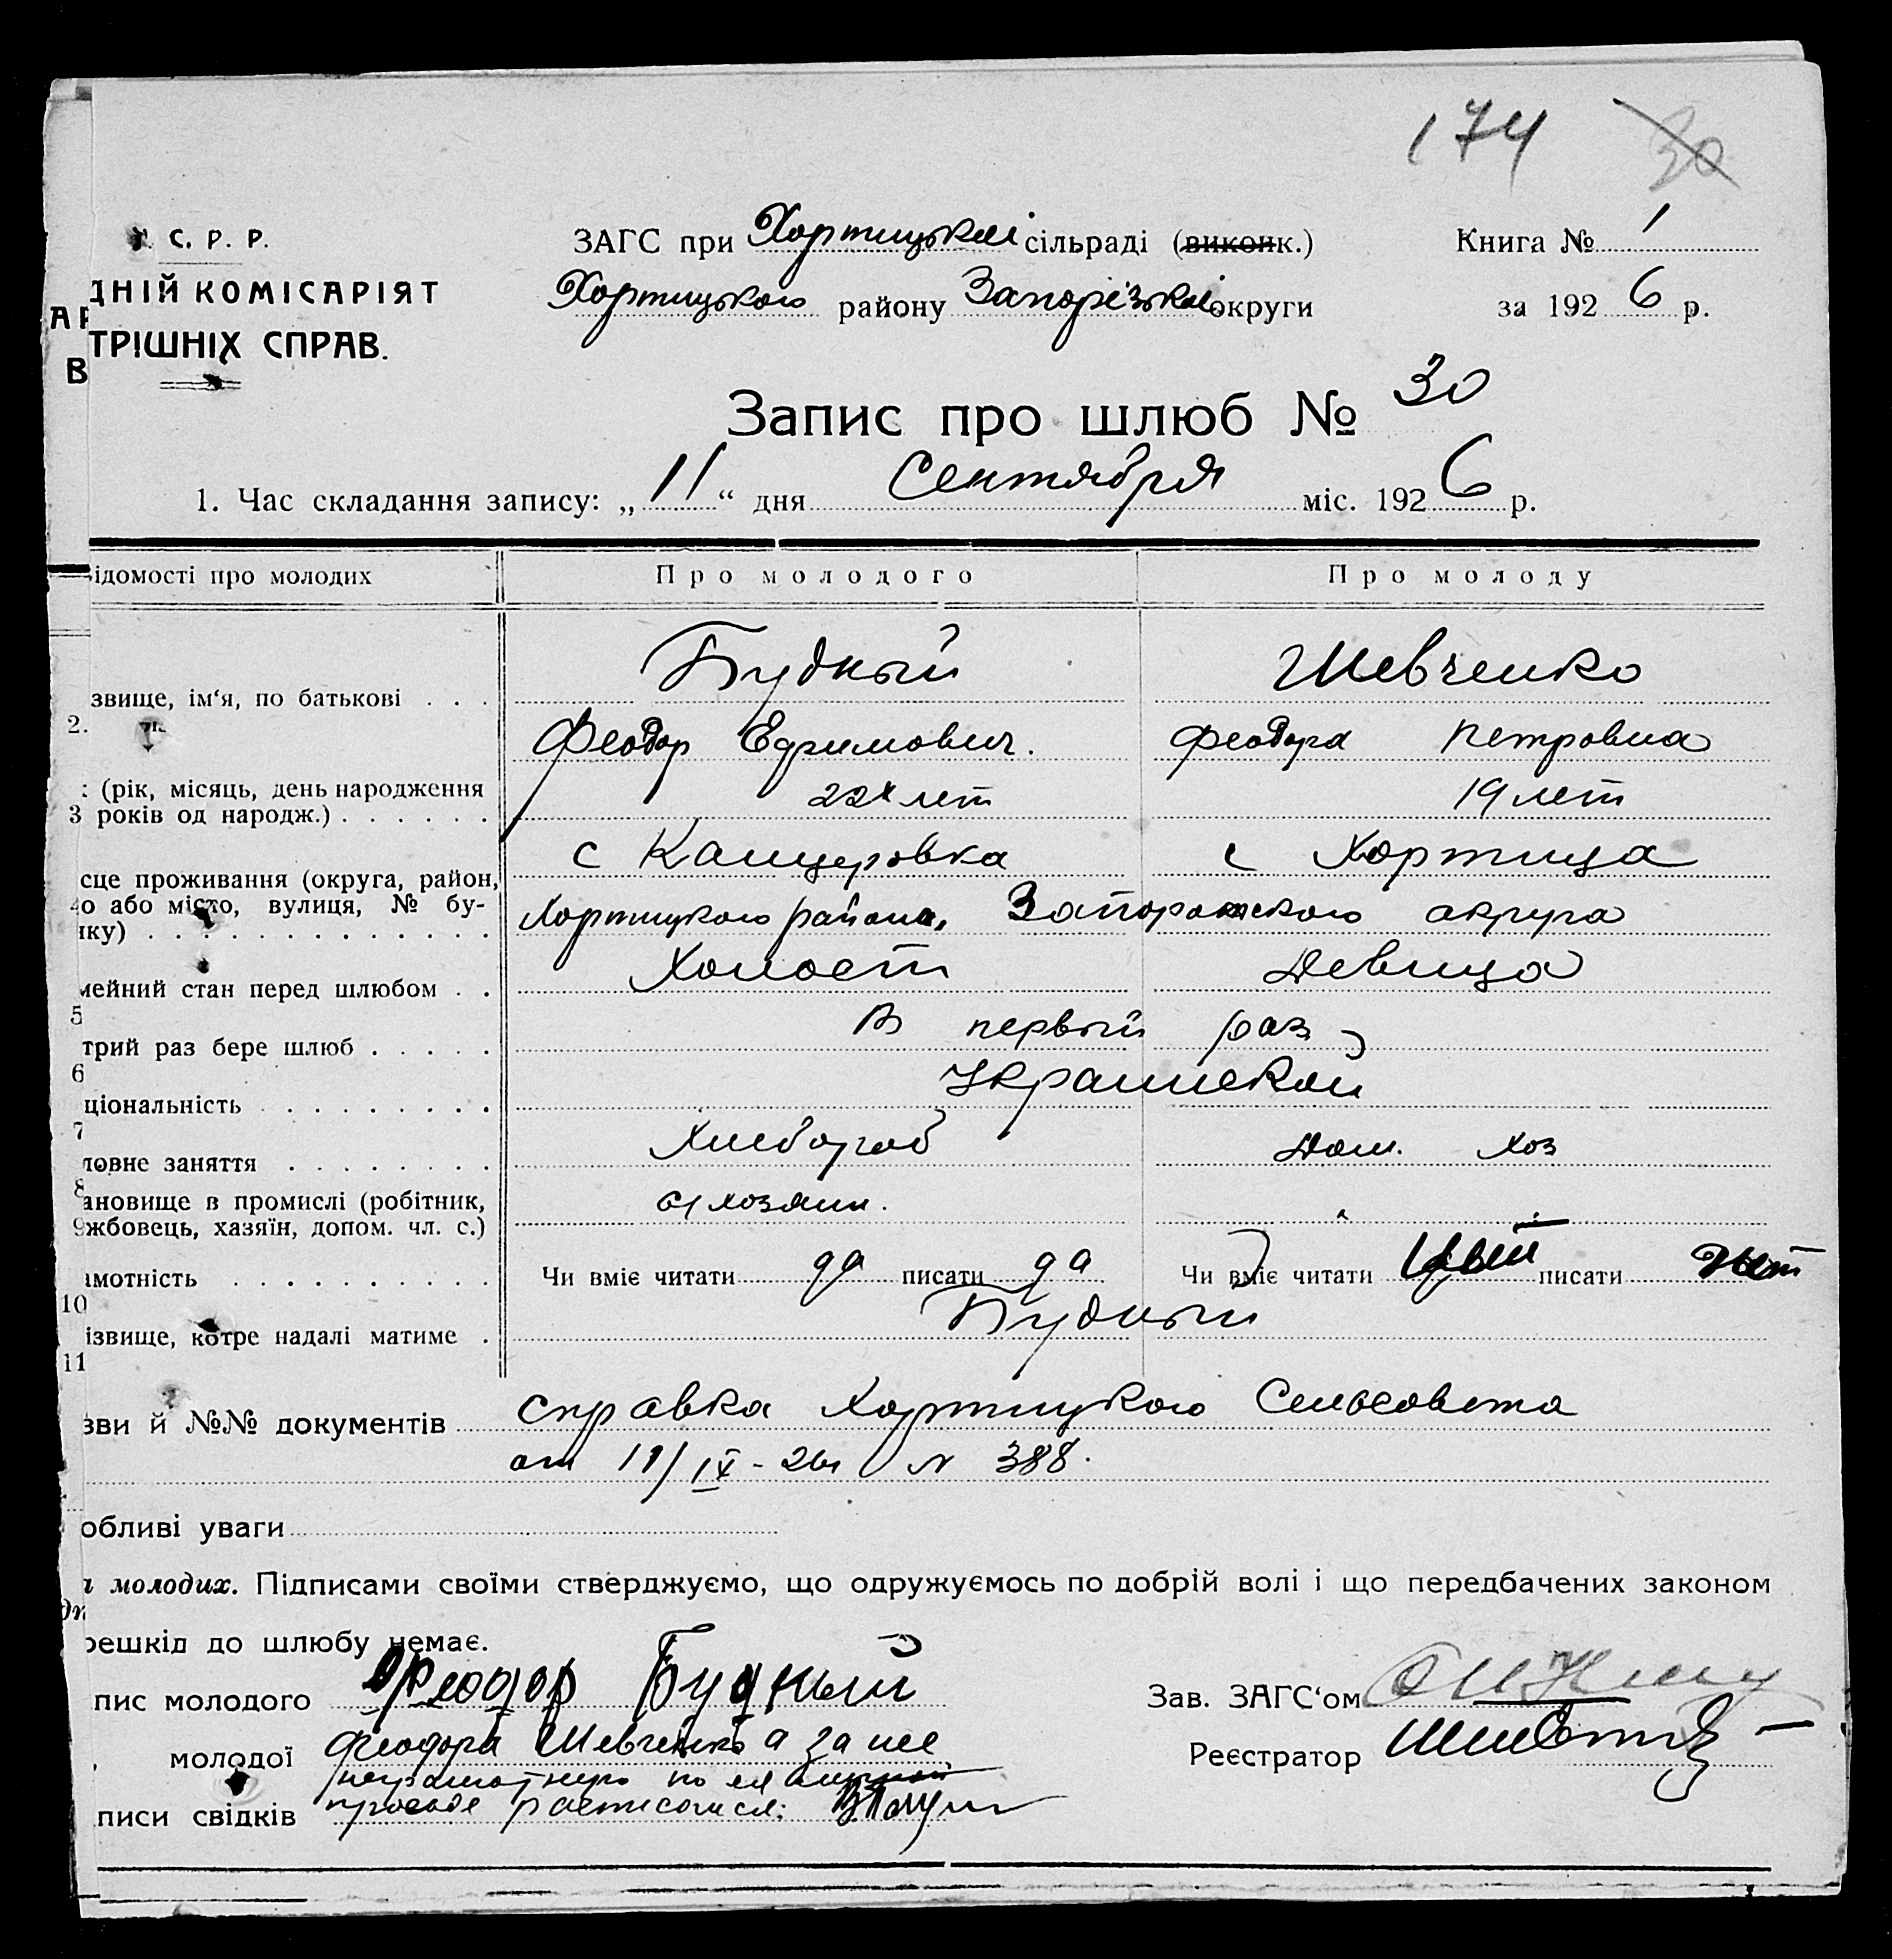 174 30
С. Р. Р.
ЗАГС при Хортицькій сільраді (виконк.) Книга № 1
ДНІЙ КОМІСАРІЯТ
Хортицького району Запорізької округи за 1926 р.
ТРІШНІХ СПРАВ.
Запис про шлюб № 30
1. Час складання запису: „11“ дня Сентября міс. 1926 р.
ідомості про молодих Про молодого Про молоду
Будный Шевченко
звище, ім‘я, по батькові . . .
2. Феодор Ефимович. Феодора Петровна
(рік, місяць, день народження
3 років од народж.) . . . . . . 22х лет 19 лет
с Канцеровка с Хортица
сце проживання (округа, район,
о або місто, вулиця, № бу-
ку) . . . . . . . . . . . . . Хортицкого района, Запорожского округа
мейний стан перед шлюбом . . Холост Девица
5
трий раз бере шлюб . . . . . В первый раз
6
ціональність . . . . . . . . . Украинской
7
ловне заняття . . . . . . . . Хлебороб Дом. хоз
8
ановище в промислі (робітник,
9 жбовець, хазяїн, допом. чл. с.) хозяин.
мотність . . . . . . . . . . Чи вміє читати да писати да Чи вміє читати нет писати нет
10
ізвище, котре надалі матиме . Будный
11
зви й №№ документів справка Хортицкого Сельсовета
от 11/IX-26г N 388.
обливі уваги
молодих. Підписами своїми стверджуємо, що одружуємось по добрій волі і що передбачених законом
решкід до шлюбу немає.
пис молодого Феодор Будный Зав. ЗАГС‘ом
молодої Феодора Шевченко а за нее
неграмотную по ея личной Реєстратор
писи свідків просьбе расписался: